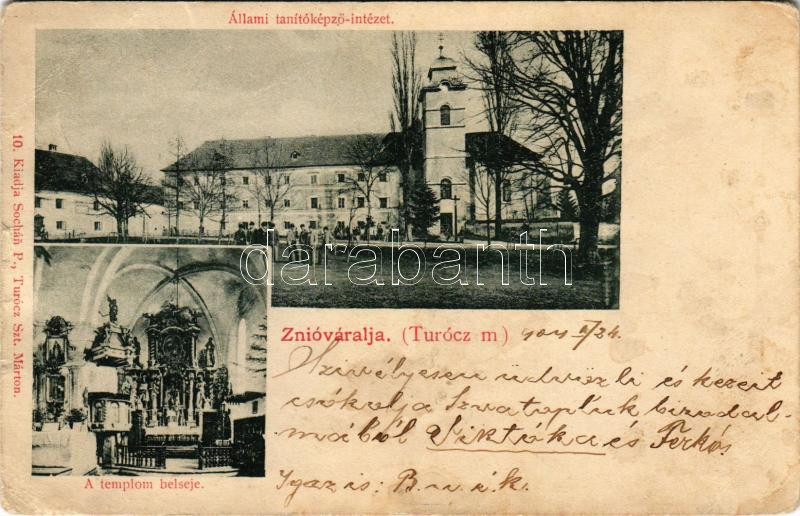 Állami tanítóképző-intézet.
10. Kiadja Socháň P., Turócz Szt. Márton.
darabanth
Znióváralja. (Turócz m)
A templom belseje.
Szivélyesen üdvözli és kezeit
csókolja Szvatopluk birodal-
mából Viktóka és Ferkó
Igaz is: B